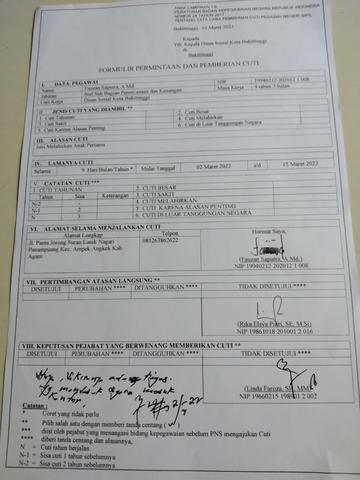 ANAK LAMPIRAN 1.b
PERATURAN BADAN KEPEGAWAIAN NEGARA REPUBLIK INDONESIA
NOMOR 24 TAHUN 2017
TENTANG TATA CARA PEMBERIAN CUTI PEGAWAI NEGERI SIPIL
Bukittinggi, 01 Maret 2022
Kepada
Yth. Kepala Dinas Sosial Kota Bukittinggi
di
Bukittinggi
FORMULIR PERMINTAAN DAN PEMBERIAN CUTI
I. DATA PEGAWAI
Nama Fauzan Saputra, A.Md. NIP 19940212 202012 1 008
Jabatan Staf Sub Bagian Perencanaan dan Keuangan Masa Kerja 4 tahun 3 bulan
Unit Kerja Dinas Sosial Kota Bukittinggi
II. JENIS CUTI YANG DIAMBIL **
1. Cuti Tahunan 2. Cuti Besar
3. Cuti Sakit 4. Cuti Melahirkan
5. Cuti Karena Alasan Penting 6. Cuti di Luar Tanggungan Negara
III. ALASAN CUTI
Istri Melahirkan Anak Pertama
IV. LAMANYA CUTI
Selama 9 Hari/Bulan/Tahun * Mulai Tanggal 02 Maret 2022 s/d 15 Maret 2022
V. CATATAN CUTI ***
1. CUTI TAHUNAN 2. CUTI BESAR
Tahun Sisa Keterangan 3. CUTI SAKIT
N-2 4. CUTI MELAHIRKAN
N-1 5. CUTI KARENA ALASAN PENTING
N 6. CUTI DI LUAR TANGGUNGAN NEGARA
VI. ALAMAT SELAMA MENJALANKAN CUTI
Alamat Lengkap Telpon Hormat Saya,
Jl. Panta Jorong Surau Lauik Nagari 085263862622
Panampuang Kec. Ampek Angkek Kab.
Agam
(Fauzan Saputra, A.Md.)
NIP 19940212 202012 1 008
VII. PERTIMBANGAN ATASAN LANGSUNG **
DISETUJUI PERUBAHAN **** DITANGGUHKAN **** TIDAK DISETUJUI ****
(Rika Eliya Putri, SE, M.Si)
NIP 19861018 201001 2 016
VIII. KEPUTUSAN PEJABAT YANG BERWENANG MEMBERIKAN CUTI **
DISETUJUI PERUBAHAN **** DITANGGUHKAN **** TIDAK DISETUJUI ****
(Linda Faroza, SE, MM)
NIP 19660215 198901 2 002
Catatan :
* Coret yang tidak perlu
** Pilih salah satu dengan memberi tanda centang
*** diisi oleh pejabat yang menangani bidang kepegawaian sebelum PNS mengajukan Cuti
**** diberi tanda centang dan alasannya,
N = Cuti tahun berjalan
N-1 = Sisa cuti 1 tahun sebelumnya
N-2 = Sisa cuti 2 tahun sebelumnya